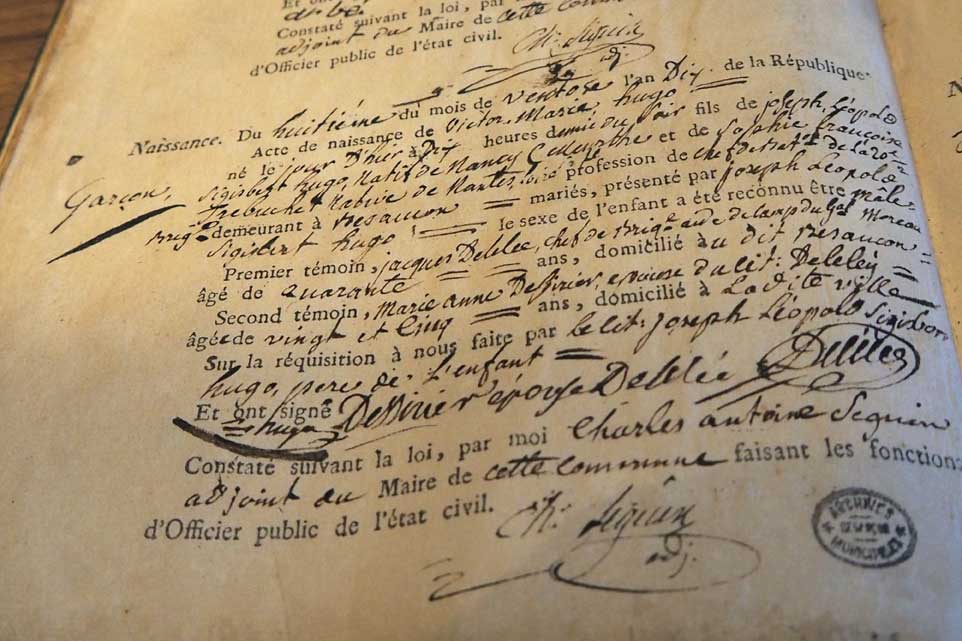 Et ont
Constaté suivant la loi, par
adjoint du Maire de cette commune
d'Officier public de l'état civil.
Ch. Seguin
adj.
Naissance. Du huitième du mois de ventose l'an Dix de la République
Acte de naissance de Victor, Marie hugo
Garçon,
né le jour d'hier à Dix heures demie du soir fils de joseph, Léopold
Sigisbert hugo, Natif de Nancy (Meurthe et de Sophie françoise
Trebuchet Native de Nantes profession de chef de
Brig.e demeurant à Besancon mariés, présenté par joseph Léopold
Sigisbert hugo le sexe de l'enfant a été reconnu être mâle
Premier témoin, jacques Delelée, chef de Brig.e aide de camp du Moreau
âgé de quarante ans, domicilié à au dit Besancon
Second témoin, Marie anne Dessirier, epouse du cit: Delelée
âgée de vingt et Cinq ans, domicilié à Ladite ville
Sur la réquisition à nous faite par le cit: joseph Léopold Sigisbert
hugo, pere de L'enfant
Et ont signé Dessirier épouse Delelée Delelée
hugo
Constaté suivant la loi, par moi Charles antoine Seguin
adjoint au Maire de cette commune faisant les fonctions
d'Officier public de l'état civil.
Ch. Seguin
adj.
ARCHIVES
MUNICIPALES